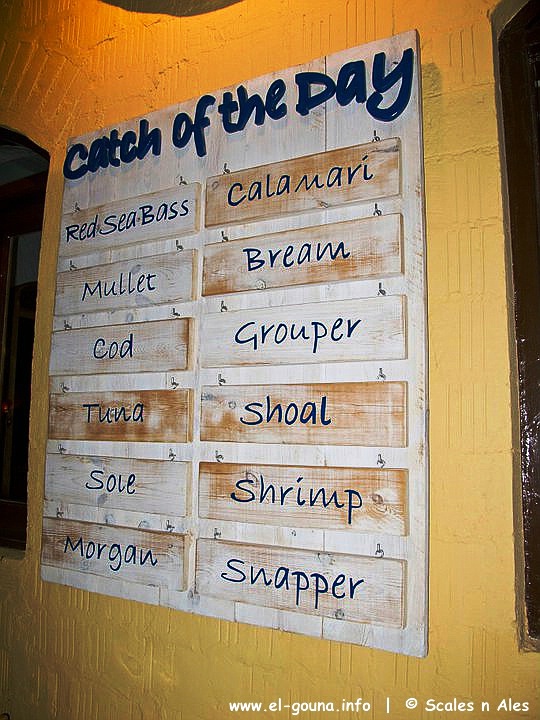 Catch of the Day
Red Sea Bass
Mullet
Cod
Tuna
Sole
Morgan
Calamari
Bream
Grouper
Shoal
Shrimp
Snapper
www.el-gouna.info | © Scales n Ales